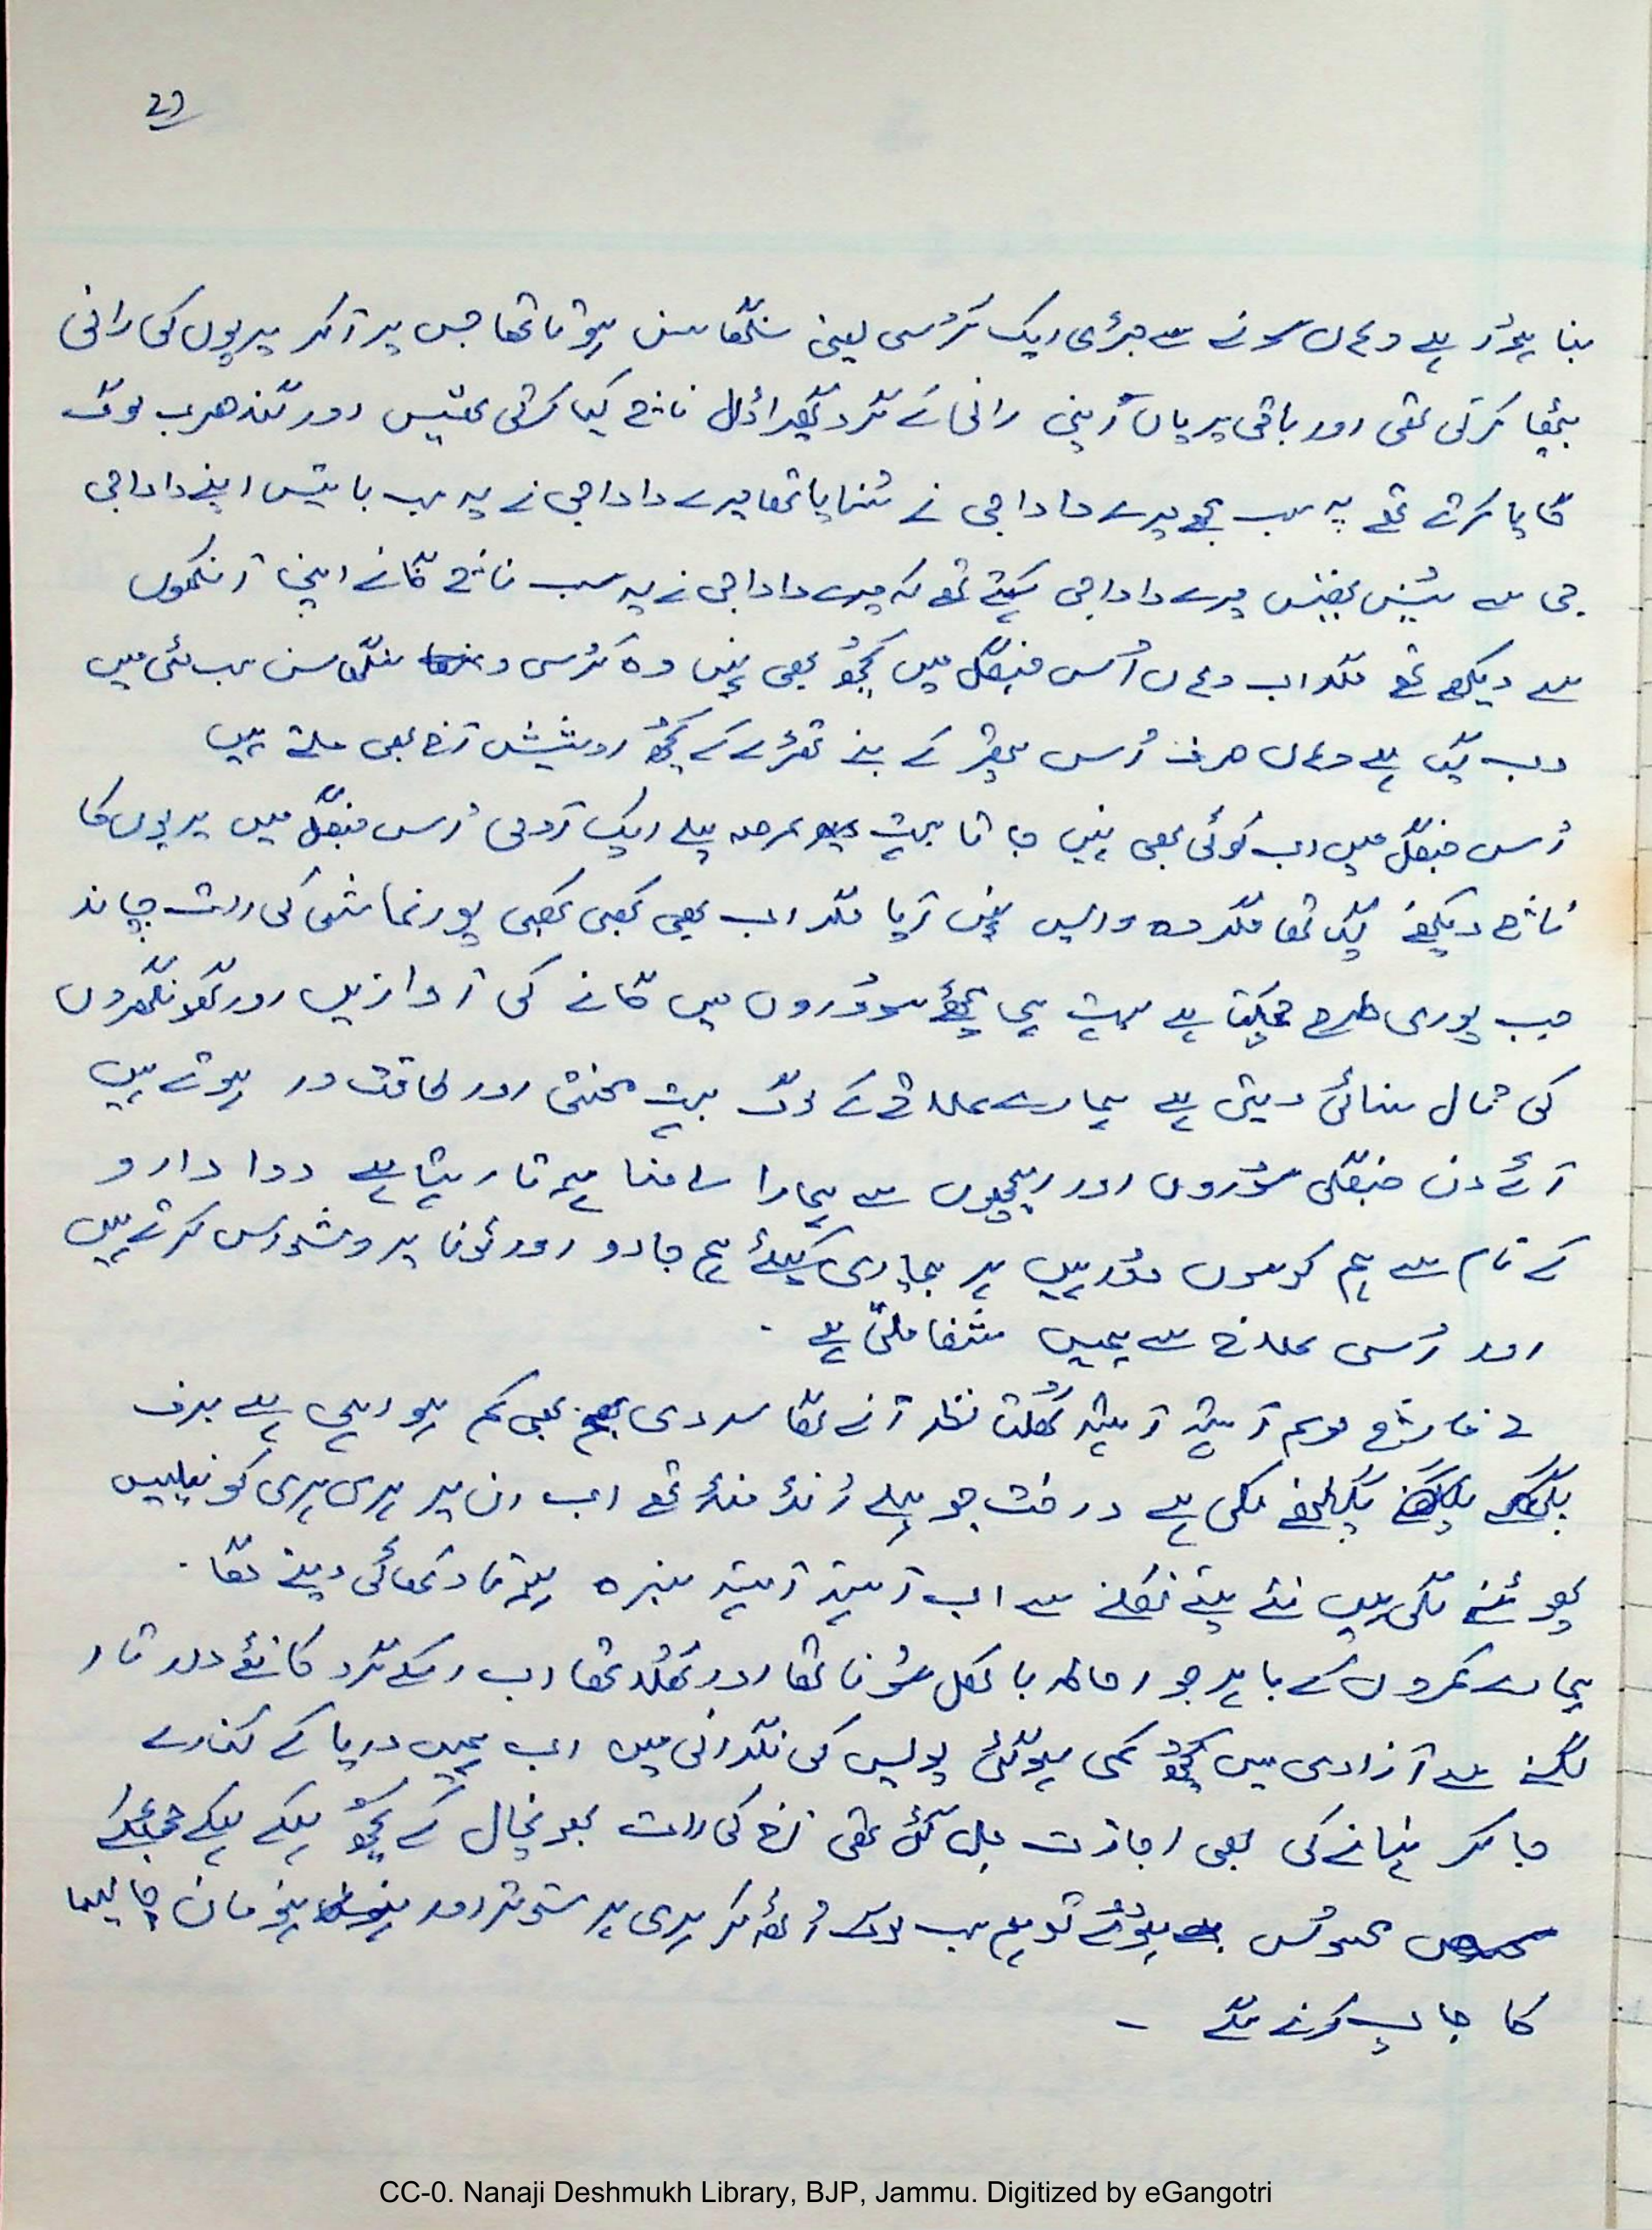 27
بنا ہوُا ہے وہاں سونے سے جڑی ایک کرُسی یعنی سنگھاسن ہوتا تھا جس پر آکر پریوں کی رانی
بیٹھا کرتی تھی اور باقی پریاں اپنی رانی کے گرد گھیرا ڈال ناچ کیا کرتی تھیں اور گندھرب لوگ
گایا کرتے تھے یہ سب مجھے میرے دادا جی نے سُنایا تھا میرے دادا جی نے یہ سب باتیں اپنے دادا جی
جی سے سُنیں تھیں میرے دادا جی کہتے تھے کہ میرے دادا جی نے یہ سب ناچ گانے اپنی آنکھوں
سے دیکھے تھے مگر اب وہاں اُس جنگل میں کچھُ بھی نہیں وہ کرُسی و سنگھاسن سب مٹی میں
دب گیا ہے وہاں صرف اُس پتھر کے بنے تھڑے کے کچھُ اوشیش آج بھی ملتے ہیں
اُس جنگل میں اب کوئی بھی نہیں جاتا بہت عرصہ پہلے ایک آدمی اُس جنگل میں پریوں کا
ناچ دیکھنے گیا تھا مگر وہ واپس نہیں آیا مگر اب بھی کبھی کبھی پورنماشی کی رات چاند
جب پوری طرح چمکتا ہے بہت ہی مدھُر سوُروں میں گانے کی آوازیں اور گھونگھروں
کی تال سنائی دیتی ہے ہمارے علاقے کے لوگ بہت محنتی اور طاقت ور ہوتے ہیں
آئے دن جنگلی سوُروں اور ریچھوں سے ہمارا سامنا ہوتا رہتا ہے دوا دارو
کے نام سے ہم کوسوں دوُر ہیں ہر بیماری کیلئے ہم جادو اور ٹونا پر وشواس کرتے ہیں
اور اُسی علاج سے ہمیں شفا ملتی ہے .
مارچ موسم آہستہ آہستہ کھُلتا نظر آنے لگا سردی بھی کم ہو رہی ہے برف
پگھلنے لگی ہے درخت جو پہلے رُنڈ مُنڈ تھے اب ان پر ہری ہری کونپلیں
پھوٹنے لگی ہیں نئے پتے نکلنے سے اب آہستہ آہستہ سبزہ ہوتا دکھائی دینے لگا .
ہمارے کمروں کے باہر جو احاطہ بالکل سوُنا تھا اور کھُلا تھا اب اسکے گرد کانٹے دار تار
لگنے سے آزادی میں کچھُ کمی ہوگئی پولیس کی نگرانی میں اب ہمیں دریا کے کنارے
جا کر نہانے کی بھی اجازت مل گئی تھی آج کی رات بھونچال کے کچھُ ہلکے ہلکے جھٹکے
محسوُس ہوُئے تو ہم سب لوگ اُٹھ کر ہری ہر ستوتر اور ہنومان چالیسا
کا جاپ کرنے لگے -
CC-0. Nanaji Deshmukh Library, BJP, Jammu. Digitized by eGangotri